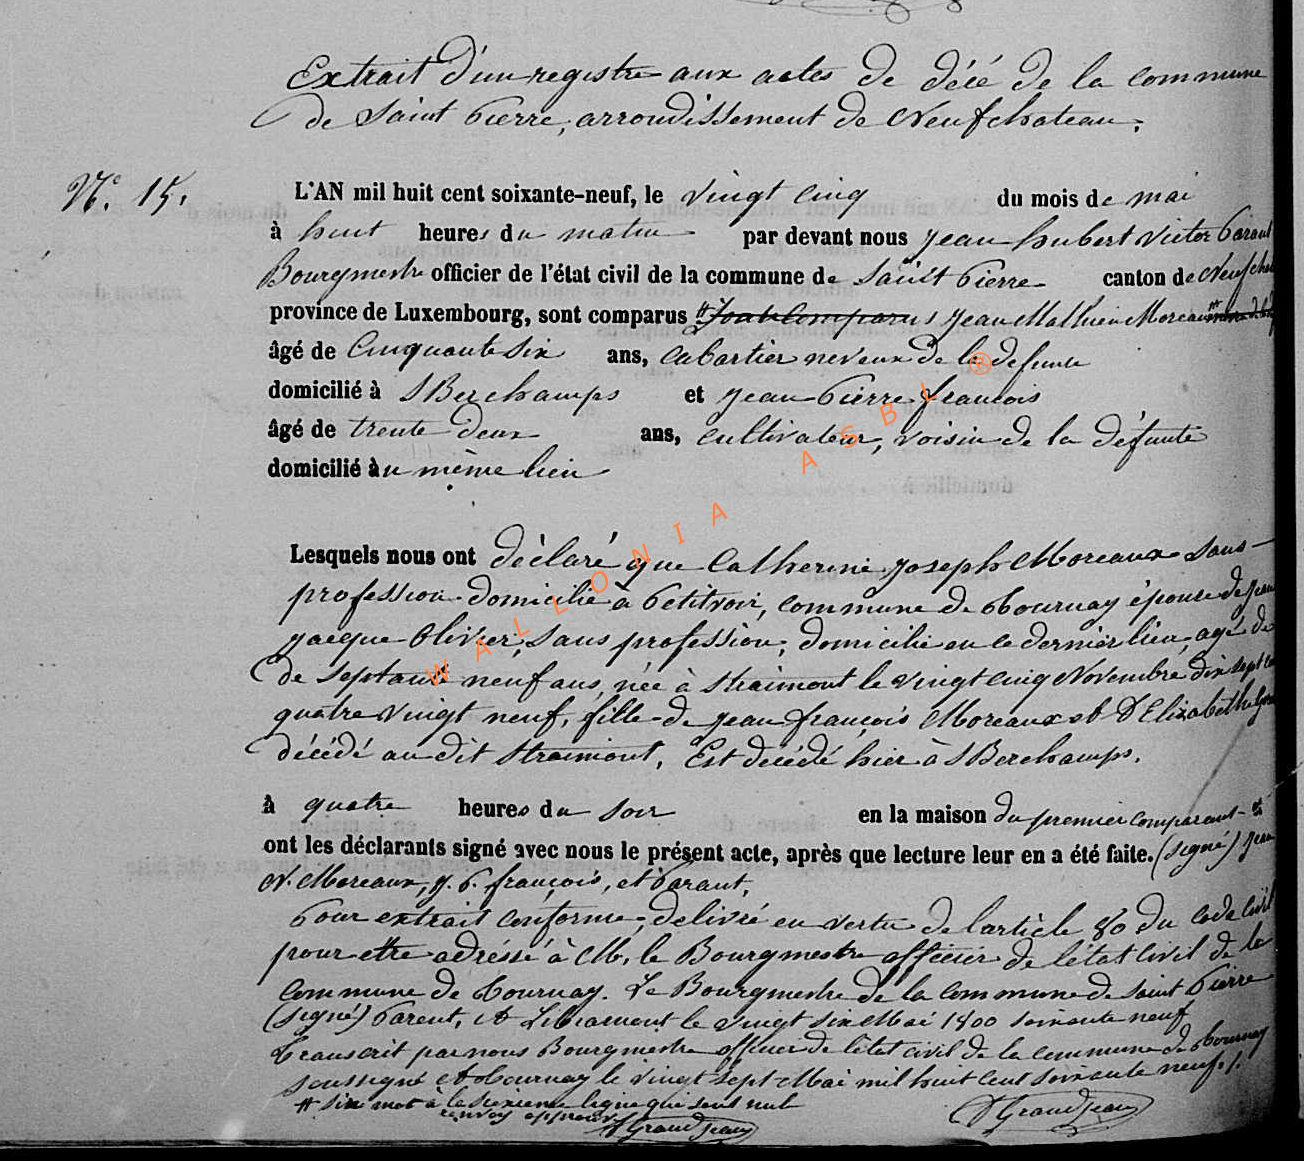 Extrait d'un registre aux actes de décé de la commune
de Saint Pierre, arroudissement de Neufchateau.
N° 15.
L'AN mil huit cent soixante-neuf, le vingt cinq du mois de mai
à huit heures du matin par devant nous Jean hubert Victor Parant
Bourgmestre officier de l'état civil de la commune de Saint Pierre canton de Neufchat
province de Luxembourg, sont comparus Jean Mathieu Moreau
âgé de Cinquante six ans, cabartier neveux de la défunte
domicilié à SBerchamps et Jean Pierre francois
âgé de trente deux ans, cultivateur, voisin de la défunte
domicilié au même lieu
Lesquels nous ont déclaré que Catherine Joseph Moreaux sans
profession domicilié à Petitvoir, commune de Tournay épouse de Jean
Jacque Olivier, sans profession, domicilié en ce dernier lieu, agé de
de septante neuf ans, née à Straimont le vingt cinq Novembre dix sept cent
quatre vingt neuf, fille de Jean francois Moreaux et d'Elizabeth
décédé au dit Straimont, Est décédé hier à SBerchamps.
à quatre heures du soir en la maison du premier comparant et
ont les déclarants signé avec nous le présent acte, après que lecture leur en a été faite. (signé) Jean
N. Moreaux, J. P. françois, et Parant,
Pour extrait conforme, delivré en vertu de l'article 80 du code civil
pour etre adréssé à M. le Bourgmestre officier de l'état civil de la
Commune de Tournay. Le Bourgmestre de la commune de Saint Pierre
(signé) Parent, A Libramont le vingt six Mai 1800 soixante neuf
Transcrit par nous Bourgmestre officier de l'état civil de la commune de Tournay
soussigné A Tournay le vingt sept Mai mil huit cent soixante neuf./.
# six mot à la sixieme ligne qui sont nul
renvoy approuvé
Grandjean
Grandjean
WALLONIA ASBL ®